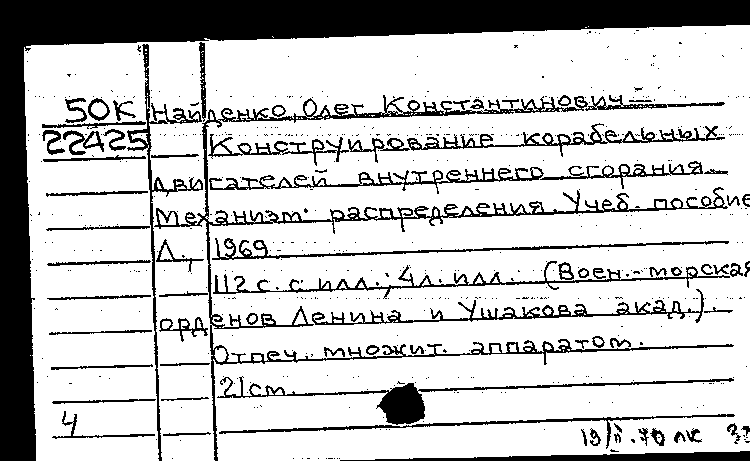 50К Найденко, Олег Константинович—
22425 Конструирование корабельных
двигателей внутреннего сгорания.
Механизм распределения. Учеб. пособие
Л., 1969
112 с. с илл.; 4 л. илл. (Воен.-морская
орденов Ленина и Ушакова акад.).
Отпеч. множит. аппаратом.
21 см.
4
19/II.70 лк